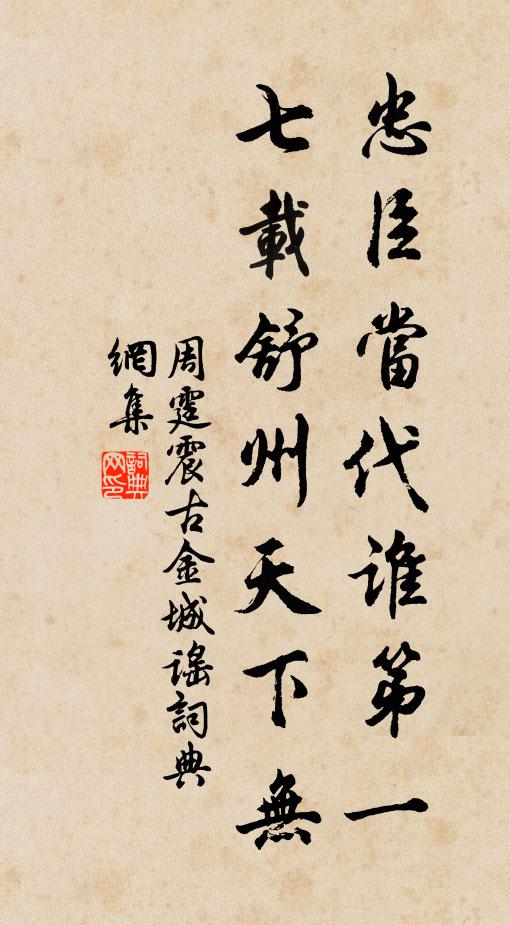 忠臣當代誰第一
七載舒州天下無
周霆震古金城謠詞典
網集
詞典網印